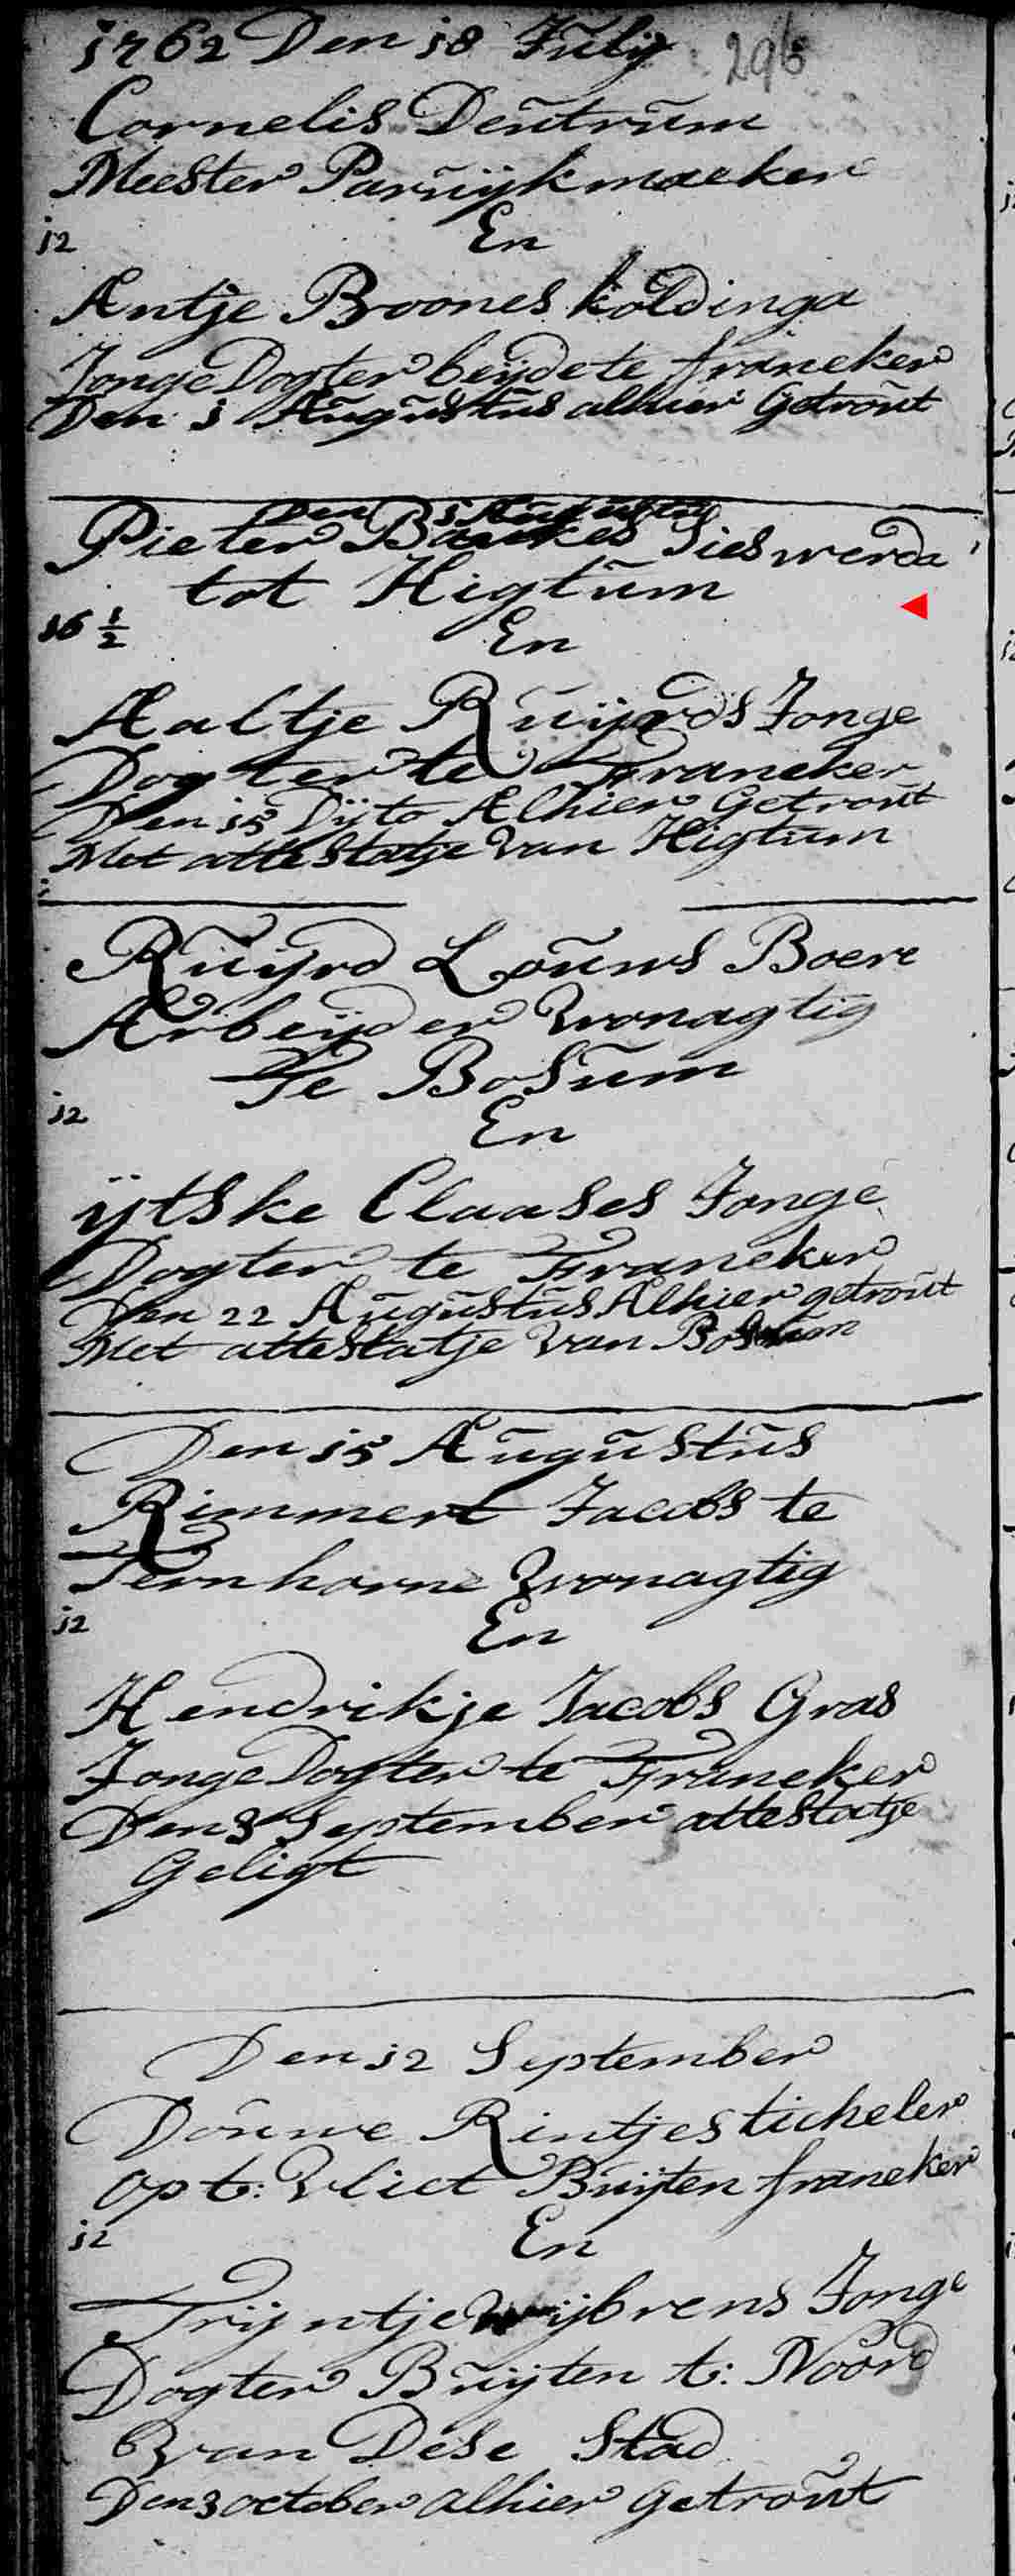 1762 Den 18 Julij 296
Cornelis Deütrüm
Meester Paruijkmaeker
12 En
Antje Broones koldinga
Jonge Dogter beijde te franeker
Den 1 Aügüstüs alhier Getroüt
Den 1 Augustus
Pieter Baukes Sieswerda
tot Higtüm
16 1/2 En
Aaltje Ruijrds Jonge
Dogter te Franeker
Den 15 Dijto Alhier Getroüt
Met attestatje van Higtum
Rüijrd Loüws Boere
Arbeijder Wonagtig
Te Bosüm
12 En
ijtske Claases Jonge
Dogter te Franeker
Den 22 Aügüstüs Alhier getroüt
Met attestatje van Bosum
Den 15 Aügüstüs
Rimmert Jacobs te
Ternhorne Wonagtig
12 En
Hendrikje Jacobs Gras
Jonge Dogter te Franeker
Den 3 September attestatje
Geligt
Den 12 September
Doüwe Rintjes ticheler
op t: Vliet Buijten franeker
12 En
Trijntje Wijbrens Jonge
Dogter Büijten t: Noord
Van Dese Stad
Den 3 october alhier Getroüt